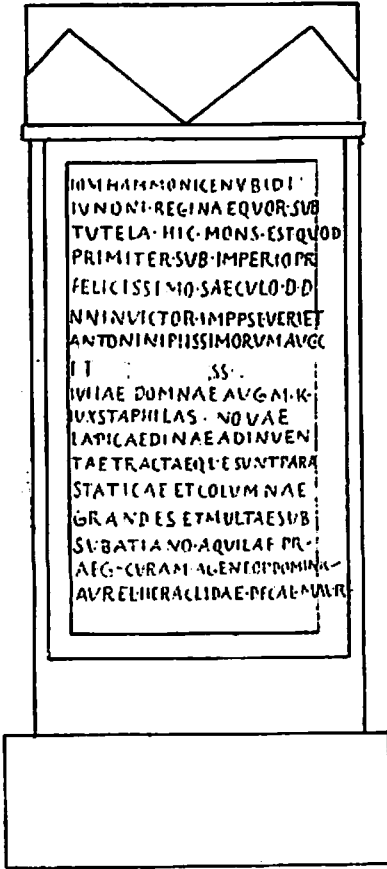 IOMHAMMONICENVBIDI
IVNONI·REGINAEQVOR·SVB
TVTELA·HIC·MONS·ESTQVOD
PRIMITER·SVB·IMPERIOPR
FELICISSIMO·SAECVLO·D·D
NNINVICTOR·IMPPSEVERIET
ANTONINIPIISSIMORVMAVGG
IT SS·
IVLIAE DOMNAE AVG·M·K·
IVXSTAPHILAS·NOVAE
LAPICAEDINAEADINVEN
TAETRACTAEQVESVNTPARA
STATICAE ETCOLVMNAE
GRANDES ETMVLTAESVB
SVBATIANO·AQVILAE PR·
AEG·CVRAM AGENTOPDOMINIC
AVREL·HERACLIDAE·DECAL·MAVR·